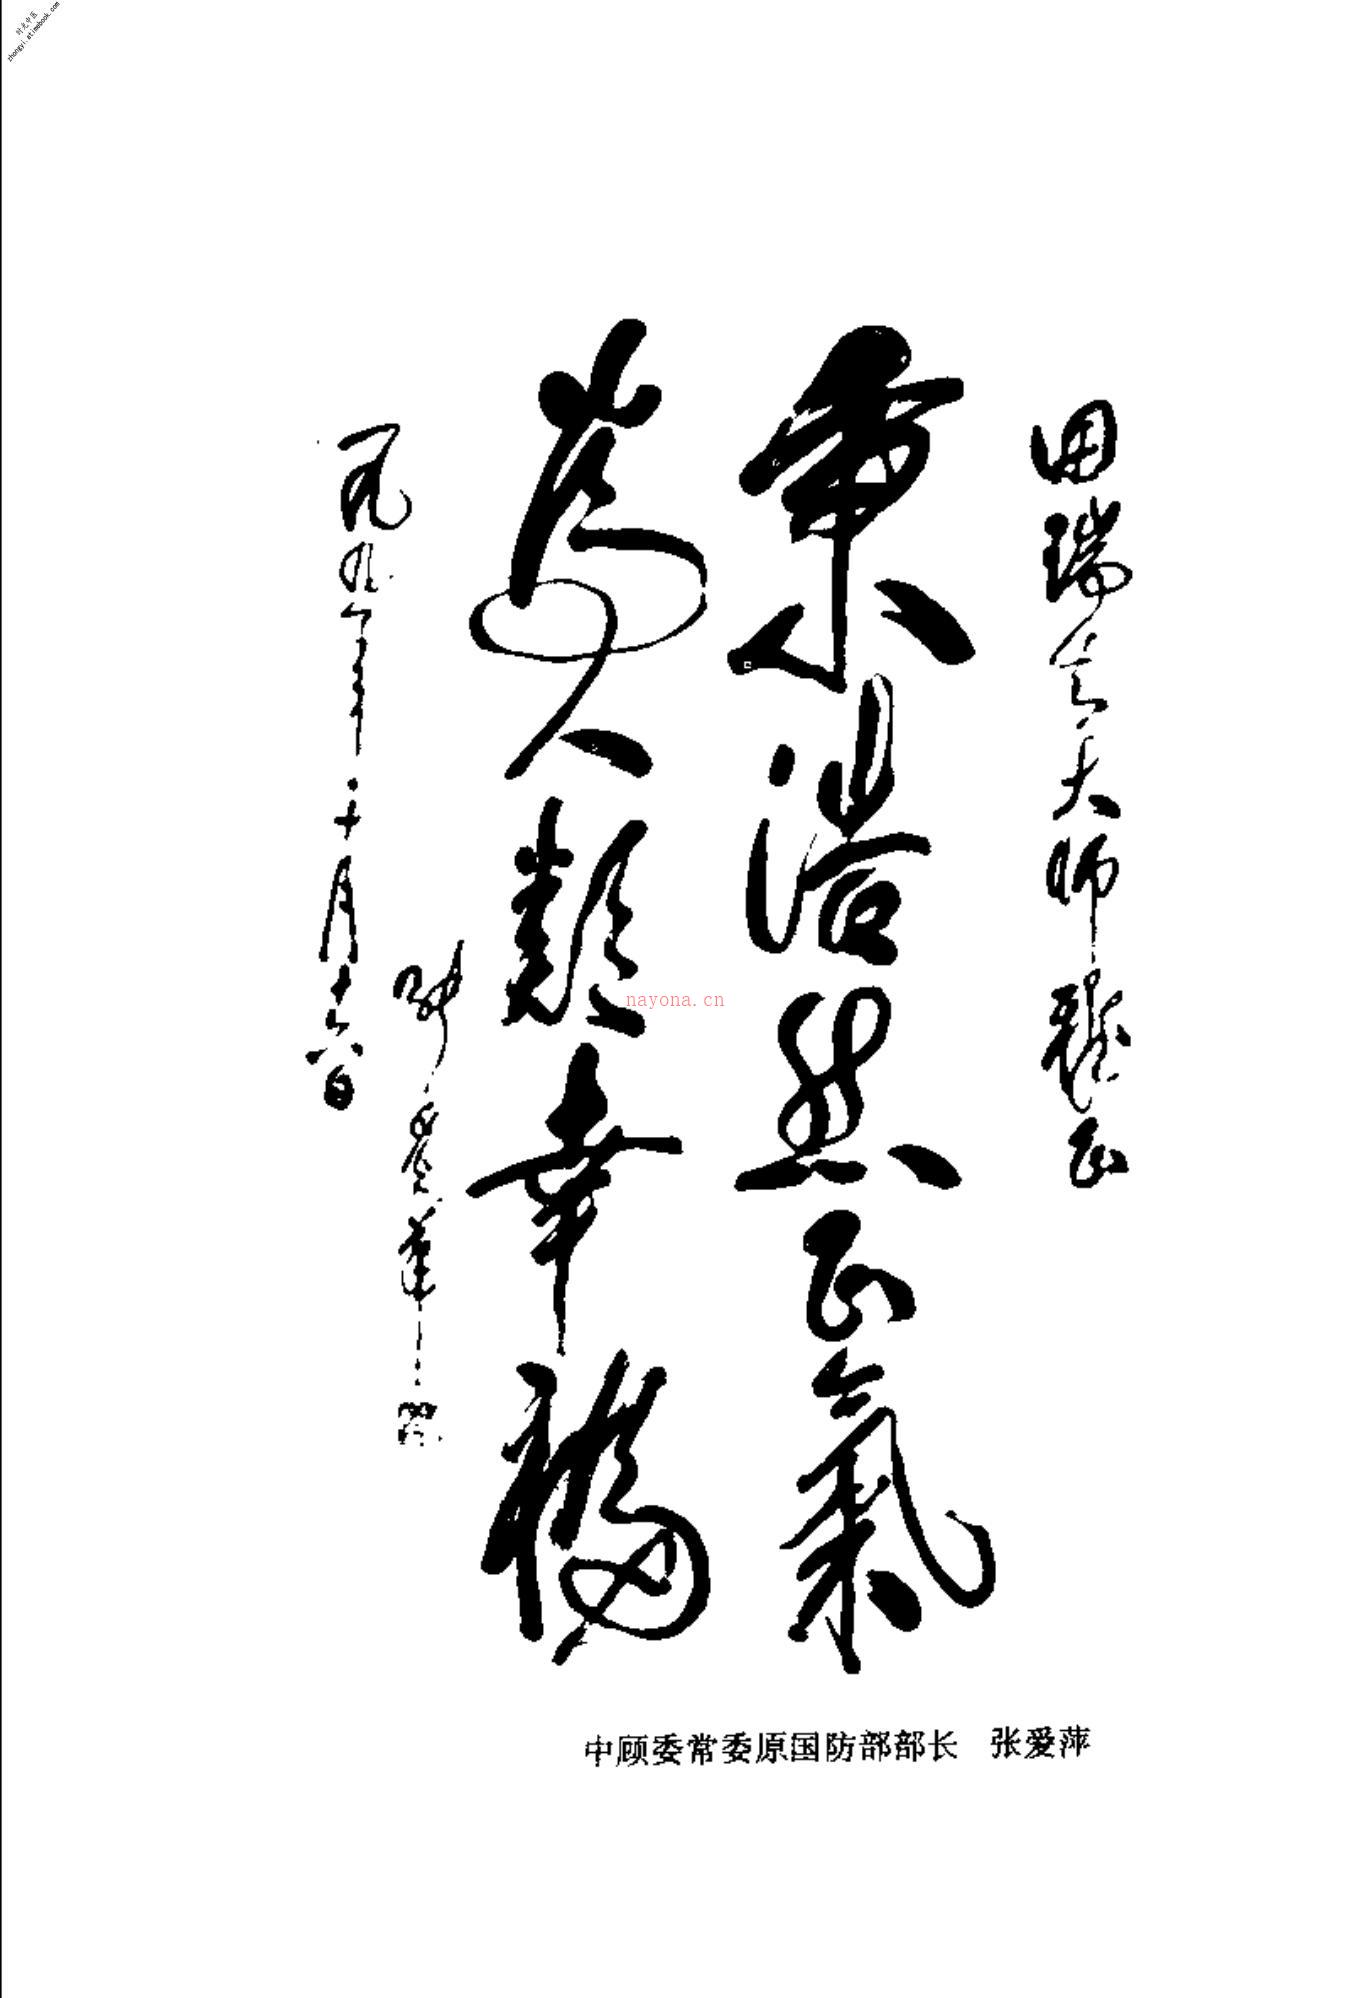 时光中医
zhongyi.atimebook.com
田瑞生大师雅正
秉浩然正氣
为人类幸福
张爱萍
一九九〇年十月十六日
nayona.cn
中顾委常委原国防部部长 张爱萍